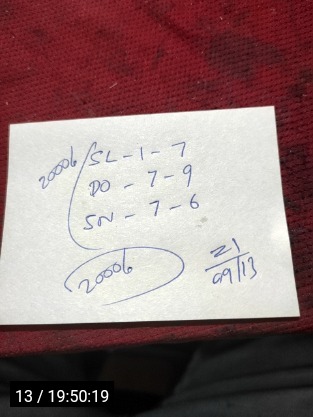 20006 / SL - 1 - 7
DO - 7 - 9
SN - 7 - 6
20006
21
09/13
13 / 19:50:19